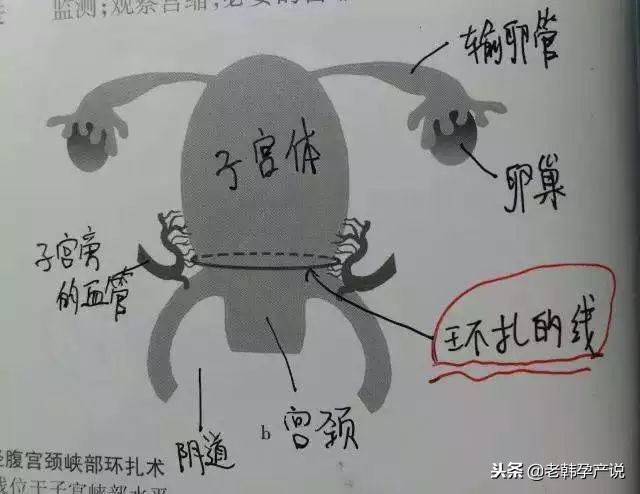 监测;观察宫缩,必要时
输卵管
子宫体
卵巢
子宫旁
的血管
环扎的线
b
宫颈
阴道
经腹宫颈峡部环扎术
线位于子宫峡部水平
头条 @老韩孕产说